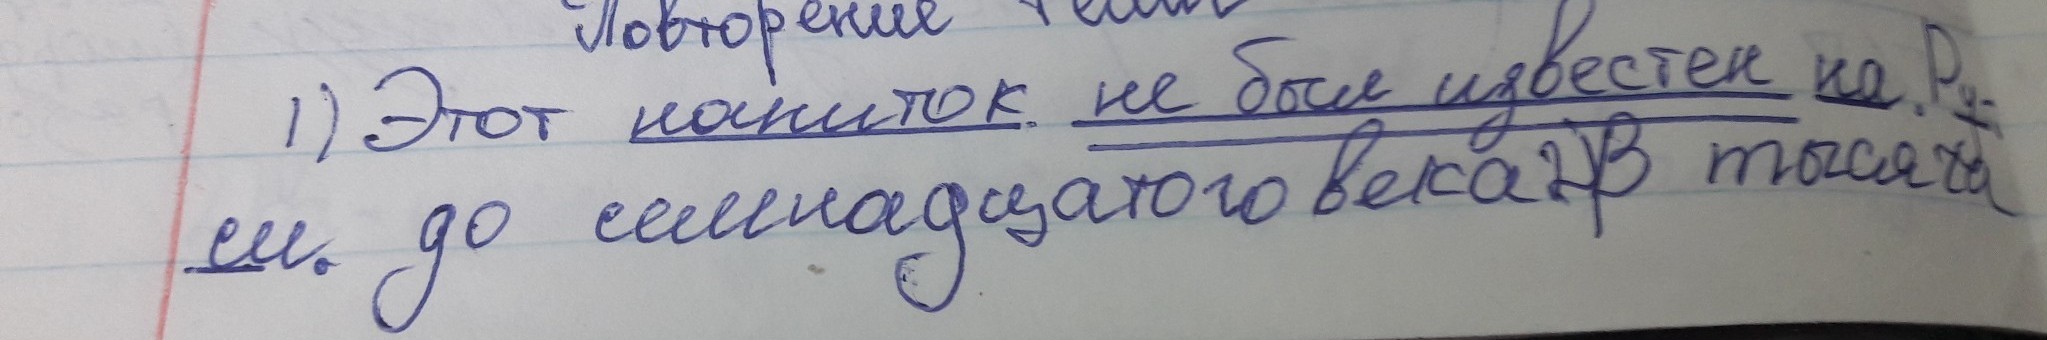 Повторение темы
1) Этот напиток не был известен на Ру-
си. до семнадцатого века 2) В тысяча